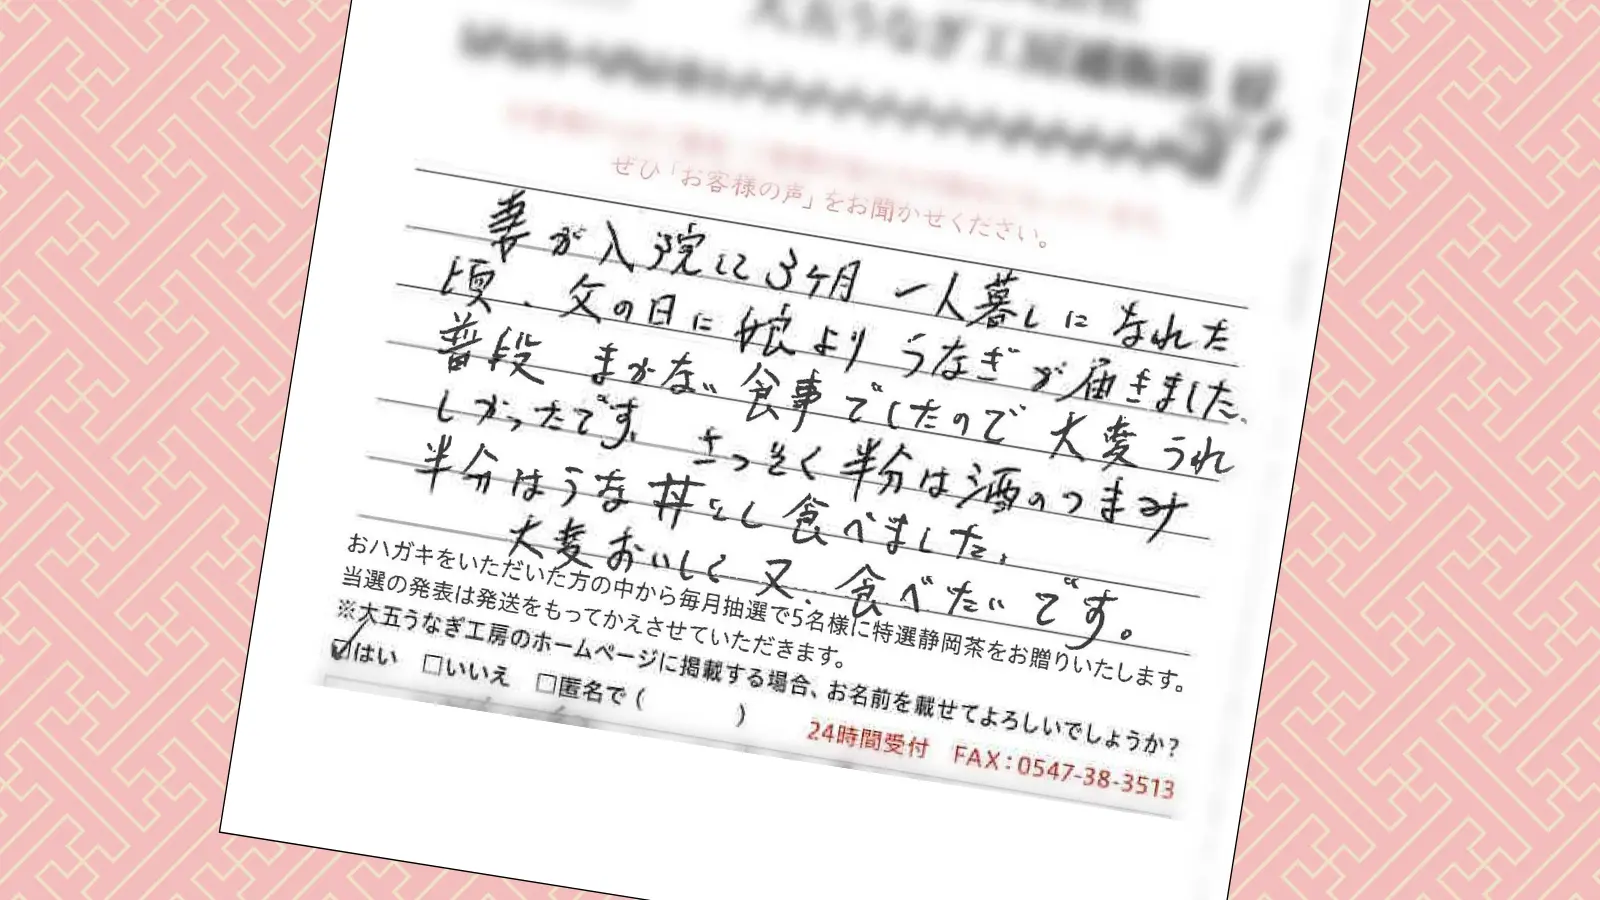 大五うなぎ工房通販部 様
ぜひ「お客様の声」をお聞かせください。
妻が入院して3ケ月 一人暮しになれた
頃、父の日に娘より うなぎが届きました、
普段 まかない食事でしたので 大変うれ
しかったです。 さっそく半分は酒のつまみ
半分はうな丼とし食べました。
大変おいしく又、食べたいです。
おハガキをいただいた方の中から毎月抽選で5名様に特選静岡茶をお贈りいたします。
当選の発表は発送をもってかえさせていただきます。
※大五うなぎ工房のホームページに掲載する場合、お名前を載せてよろしいでしょうか?
☑はい □いいえ □匿名で( )
24時間受付 FAX:0547-38-3513